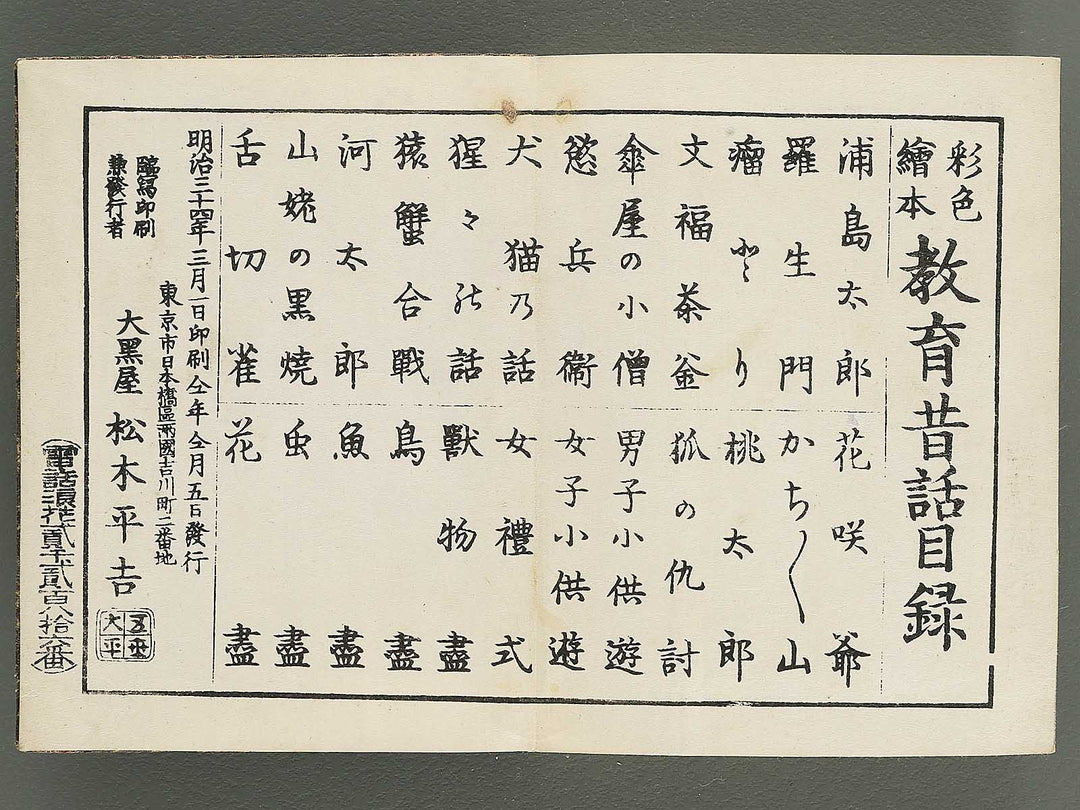 彩色
繪本
教育昔話目録
浦島太郎
羅生門
瘤とり
文福茶釜
傘屋の小僧
慾兵衞
犬猫乃話
猩々の話
猿蟹合戰
河太郎
山姥の黒焼
舌切雀
花咲爺
かち〱山
桃太郎
狐の仇討
男子小供遊
女子小供遊
女禮式
獸物盡
鳥盡
魚盡
虫盡
花盡
明治三十四年三月一日印刷仝年仝月五日發行
臨写印刷
兼發行者
東京市日本橋區両國吉川町二番地
大黒屋 松木平吉
大平
(電話浪花貳千貳百八拾六番)